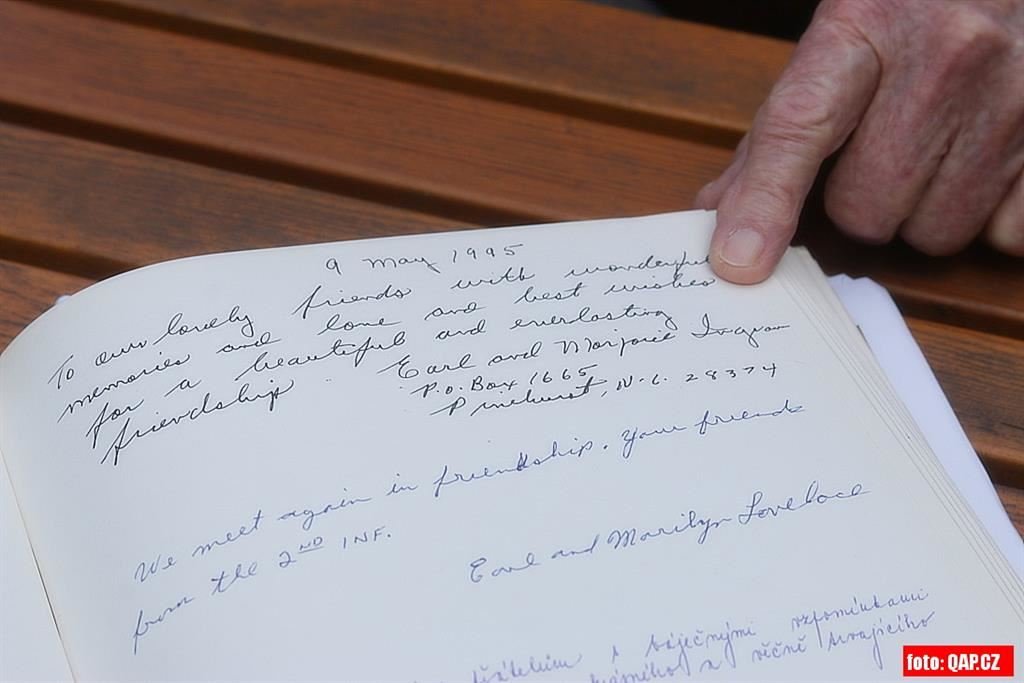 9 May 1995
To our lovely friends with wonderful
memories and love and best wishes
for a beautiful and everlasting
friendship
Earl and Marjorie Ingram
P.O. Box 1665
Pinehurst, N.C. 28374
We meet again in friendship. Your friends
from the 2ND INF.
Earl and Marilyn Lovelace
s báječnými vzpomínkami
a věčně trvajícího
foto: QAP.CZ